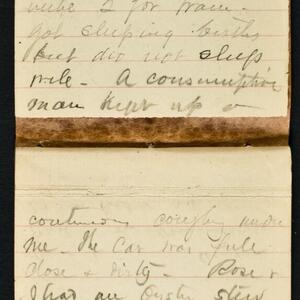 got sleeping berths
but did not sleep
well - A consumptive
man kept up a
continuous coughing under
me - The Car was full
close & dirty - Rose &
I had an Oyster stew